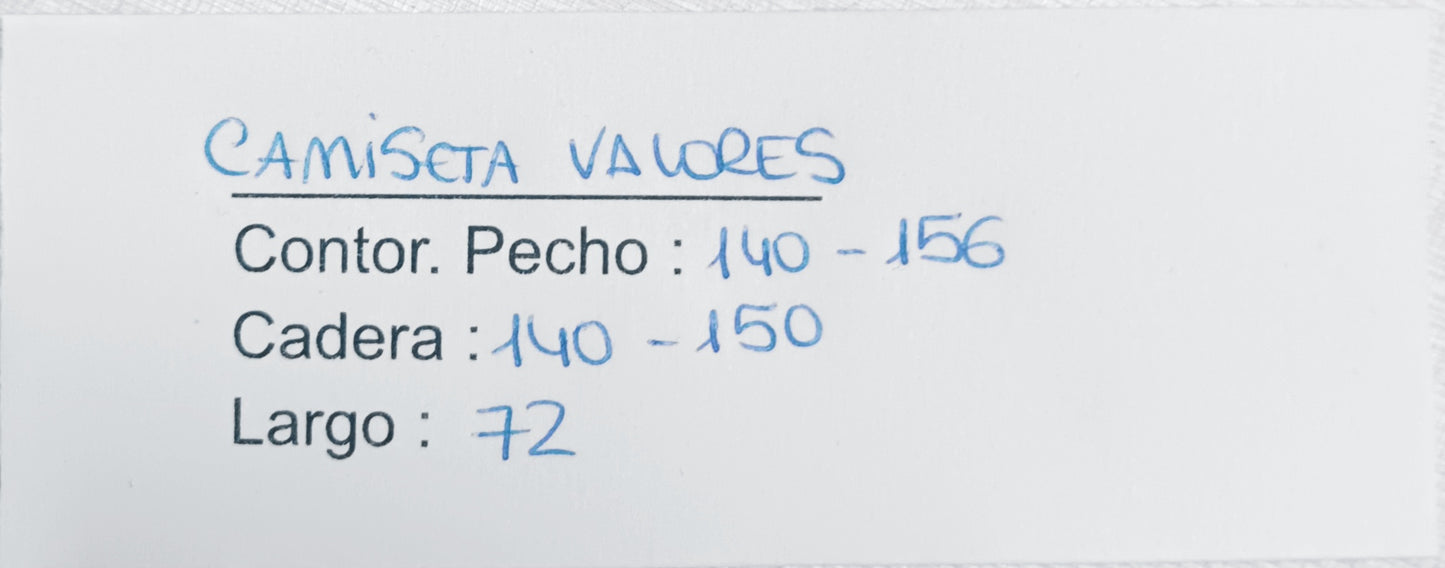 CAMiSETA VALORES
Contor. Pecho : 140 - 156
Cadera : 140 - 150
Largo : 72